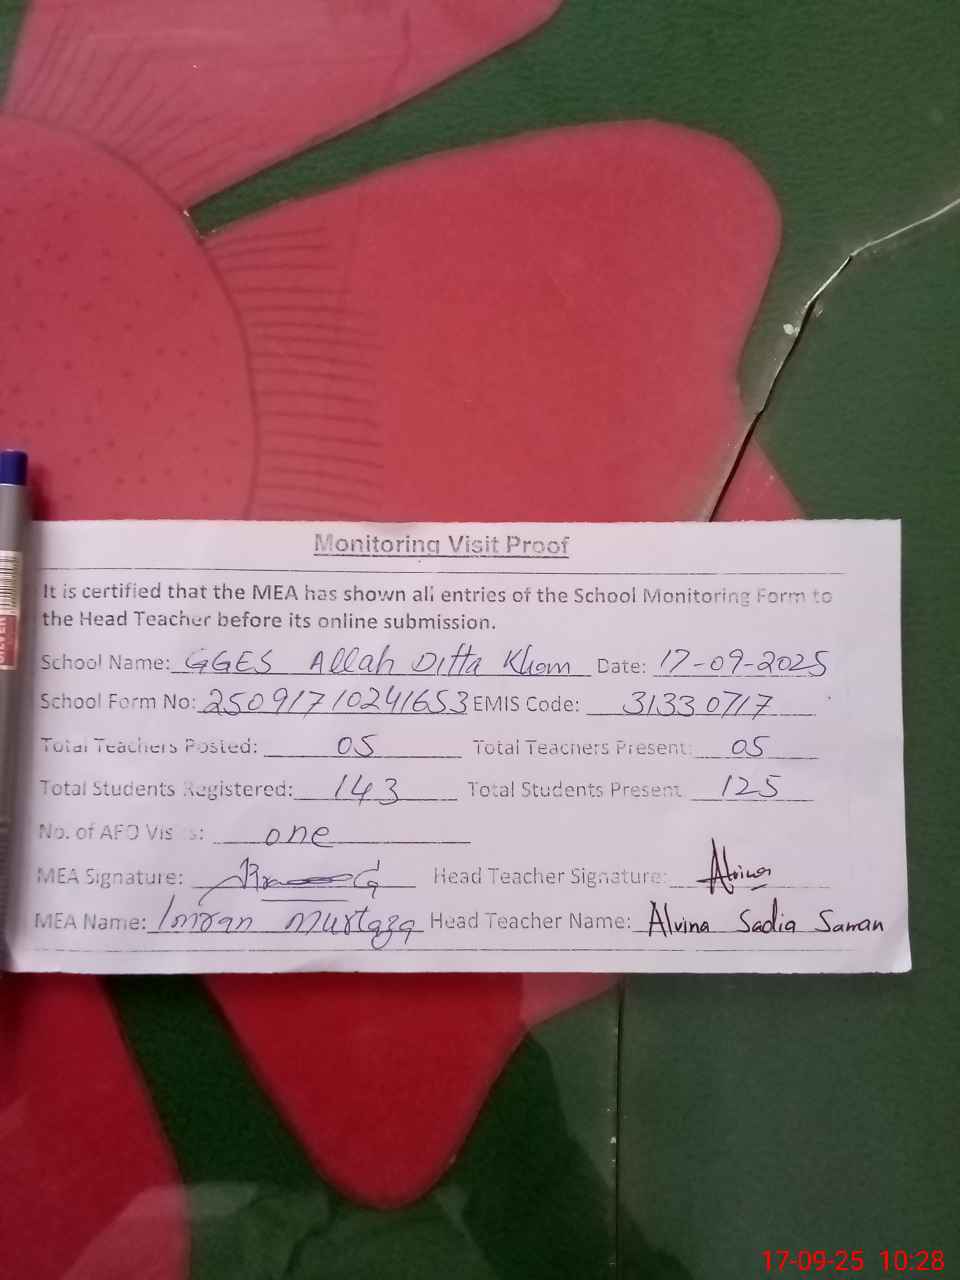 Monitoring Visit Proof
It is certified that the MEA has shown all entries of the School Monitoring Form to
the Head Teacher before its online submission.
School Name: GGES Allah Ditta Khom Date: 17-09-2025
School Form No: 25091710241653 EMIS Code: 31330717
Total Teachers Posted: 05 Total Teachers Present: 05
Total Students Registered: 143 Total Students Present 125
No. of AEO Vis s: one
MEA Signature: Head Teacher Signature: Alvina
MEA Name: Imran Murtaza Head Teacher Name: Alvina Sadia Saman
SILVER
17-09-25 10:28